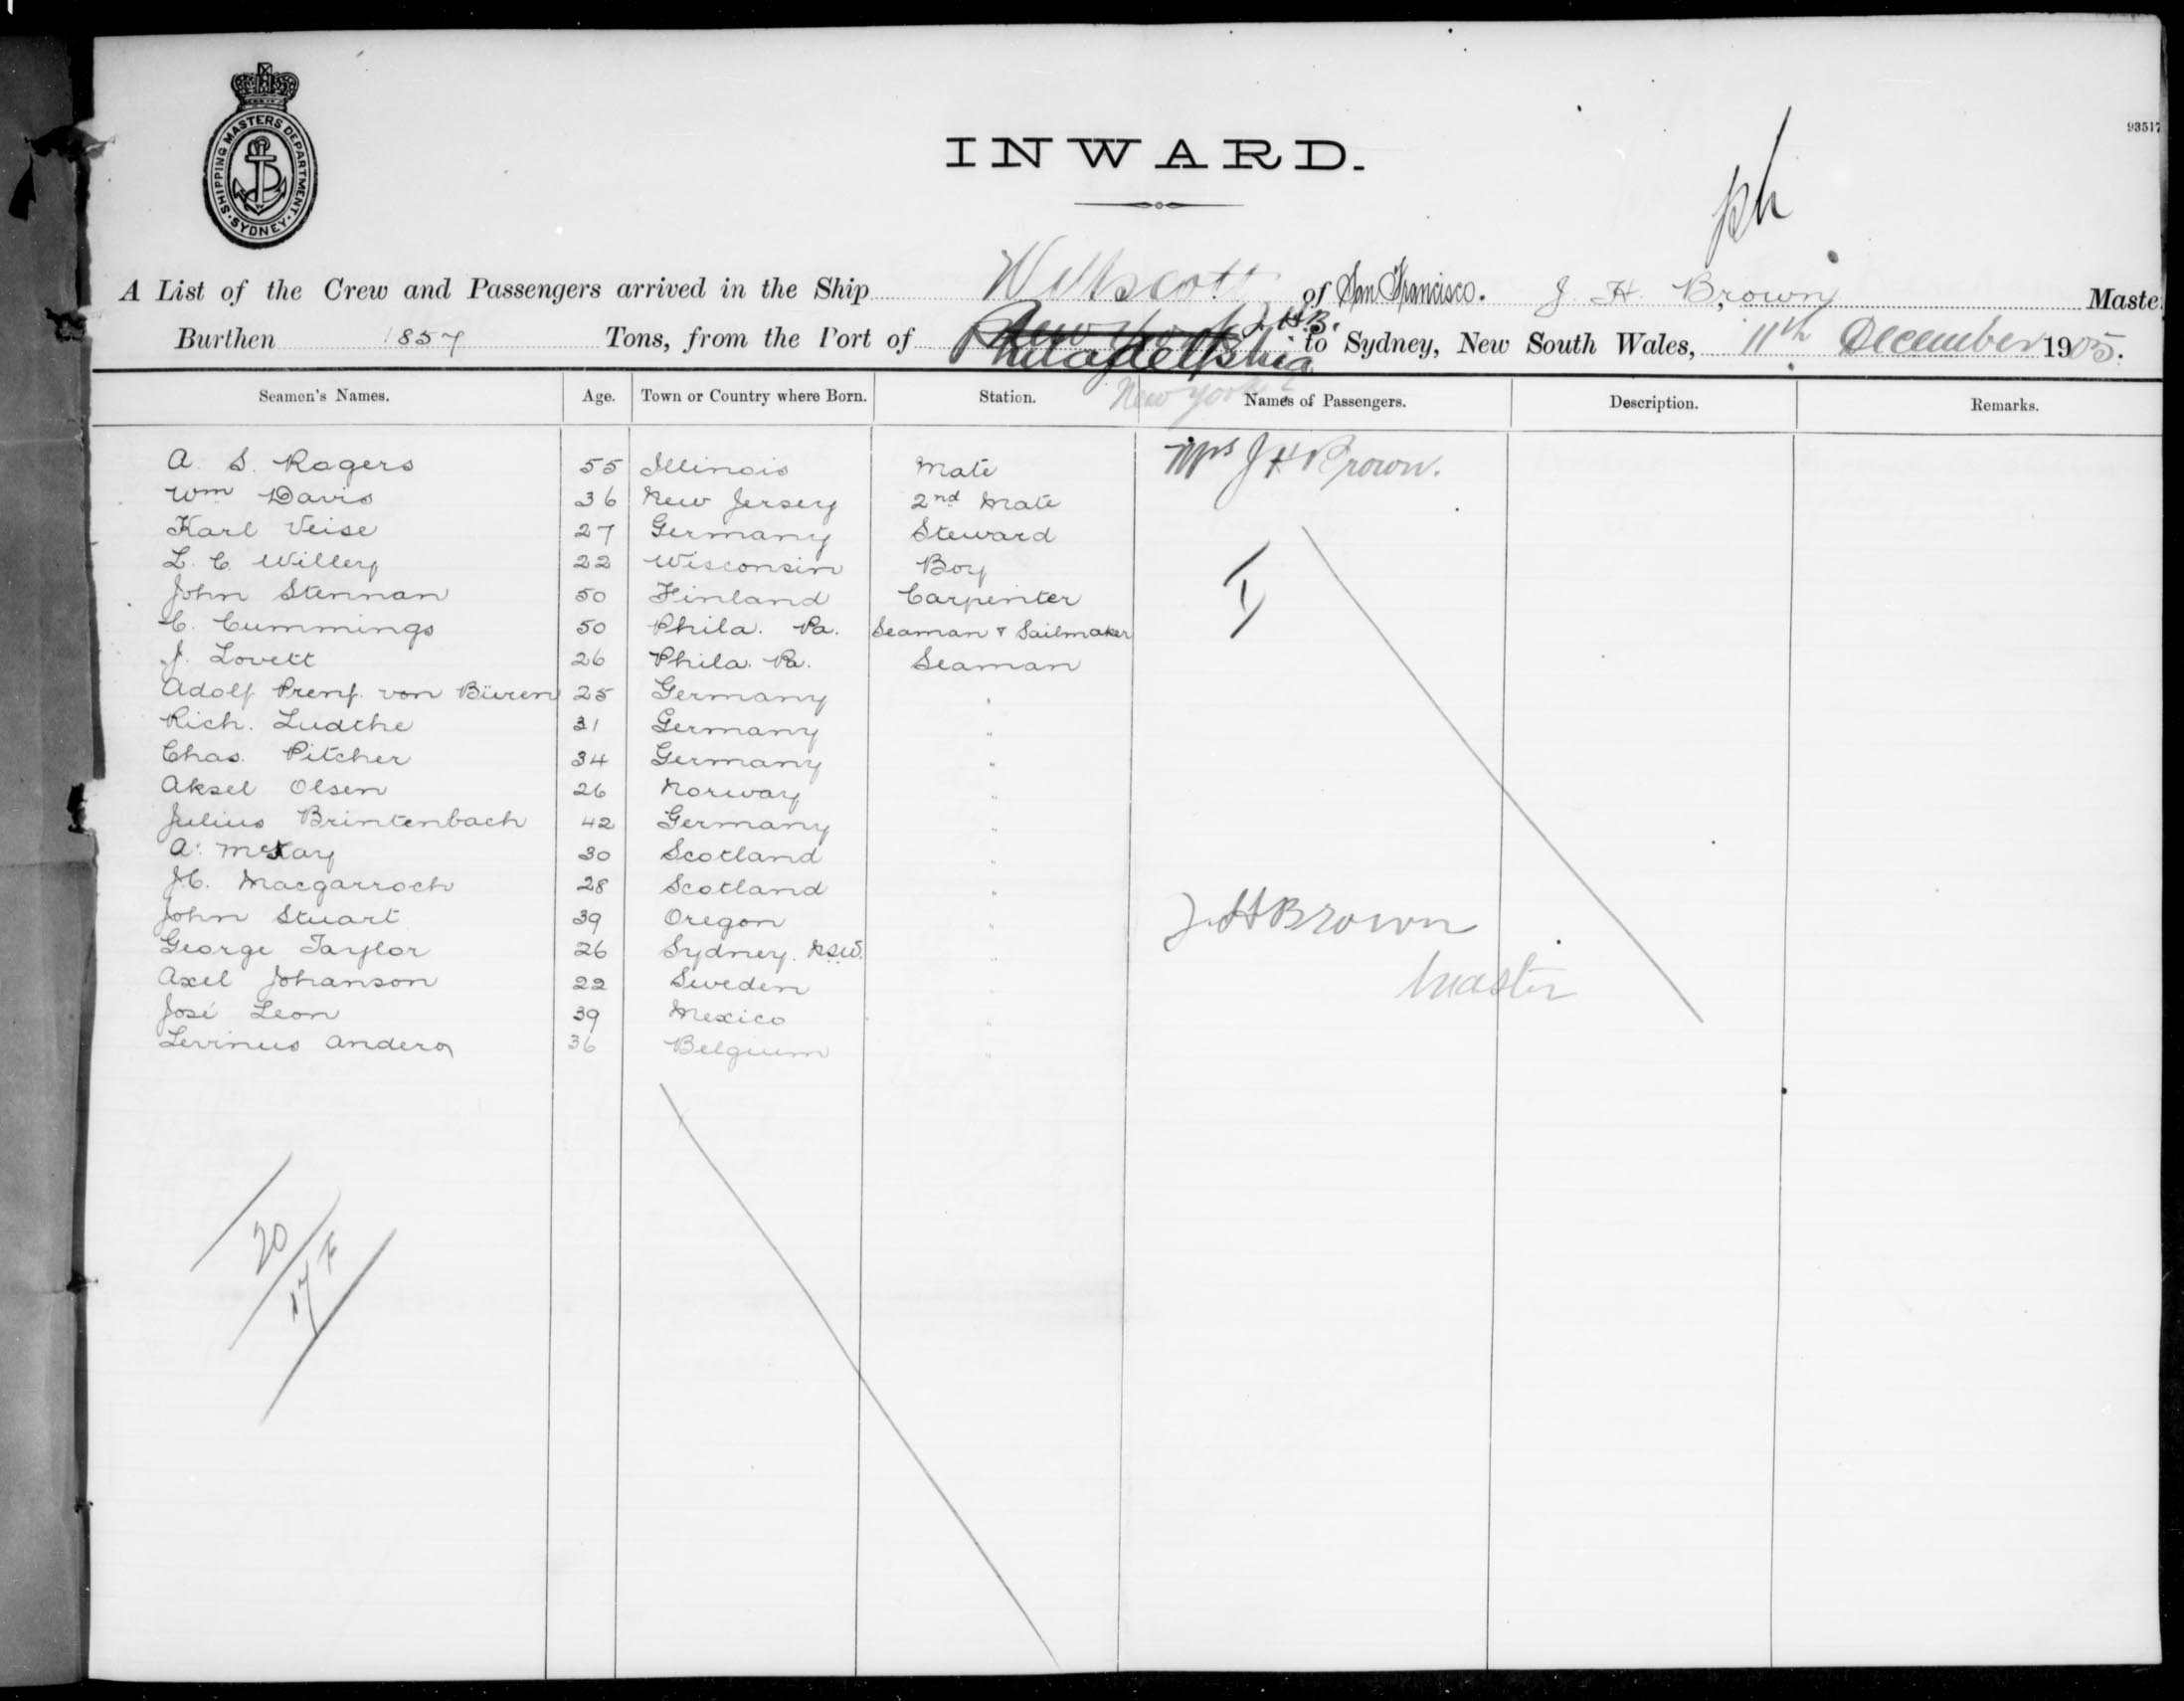 SHIPPING MASTERS DEPARTMENT.
SYDNEY
93517
INWARD.
A List of the Crew and Passengers arrived in the Ship Willscott of San Francisco. J. H. Brown, Maste
J.H.B.
Burthen 1857 Tons, from the Port of Philadelphia to Sydney, New South Wales, 11th December 1905.
New York
Seamen's Names. Age. Town or Country where Born. Station. Names of Passengers. Description. Remarks.
A. S. Rogers 55 Illinois Mate Mrs J H Brown.
Wm Davis 36 New Jersey 2nd Mate
Karl Veise 27 Germany Steward
L. C. Willey 22 Wisconsin Boy
John Stennan 50 Finland Carpenter
C. Cummings 50 Phila. Pa. Seaman & Sailmaker
J. Lovett 26 Phila. Pa. Seaman
Adolf von Büren 25 Germany "
Rich. Ludthe 31 Germany "
Chas. Pitcher 34 Germany "
Aksel Olsen 26 Norway "
Julius Brintenbach 42 Germany "
A. McKay 30 Scotland "
J.C. Macgarroch 28 Scotland "
John Stuart 39 Oregon "
George Taylor 26 Sydney. NSW. "
Axel Johanson 22 Sweden "
José Leon 39 Mexico "
Levinus 36 Belgium "
J. H Brown
Master
20
17 F